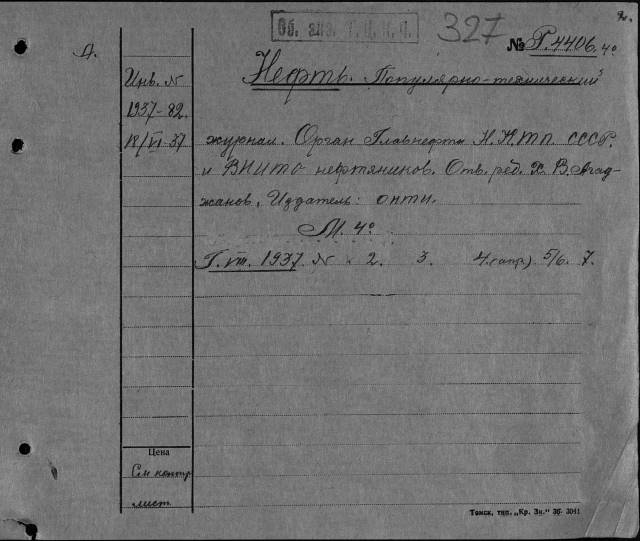 Об. экз. Г.Ц.К.П.
327
№ Р.4406. 4º
Д.
Инв. №
1937-82.
18/VI-37
Нефть. Популярно-технический
журнал. Орган Главнефти Н.К.Тп. СССР.
и ВНИТО нефтяников. Отв. ред. Х. В. Агад-
жанов. Издатель: ОНТИ.
М. 4º
Г. VIII. 1937. № 2. 3. 4.(апр.) 5/6. 7.
Цена
См контр
лист
Томск, тип. „Кр. Зн." Зб. 3041